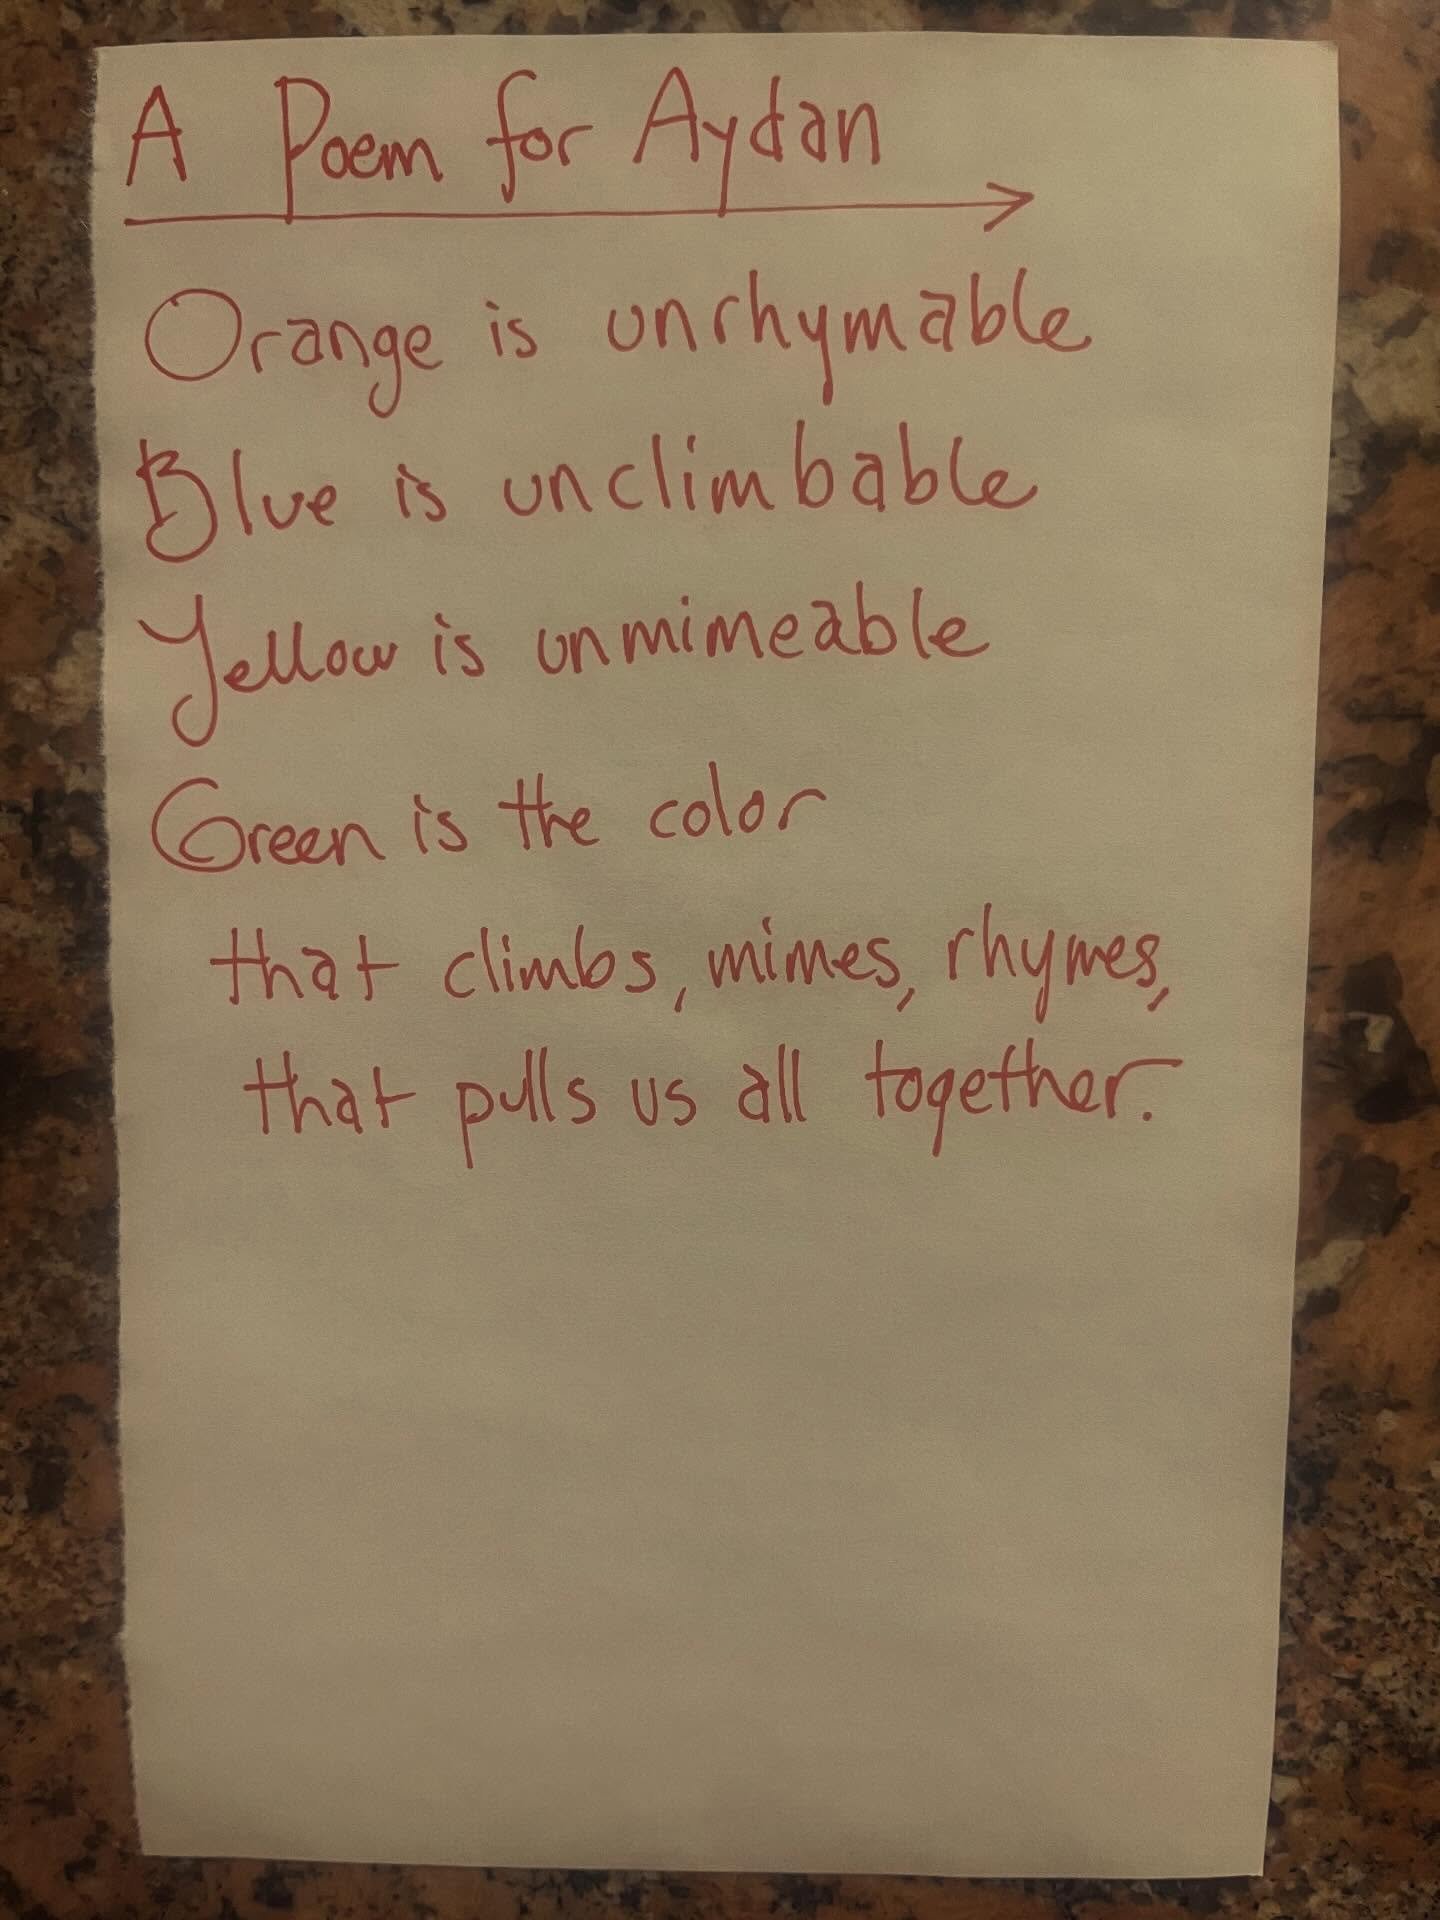 A Poem for Aydan
Orange is unrhymable
Blue is unclimbable
Yellow is unmimeable
Green is the color
that climbs, mimes, rhymes,
that pulls us all together.